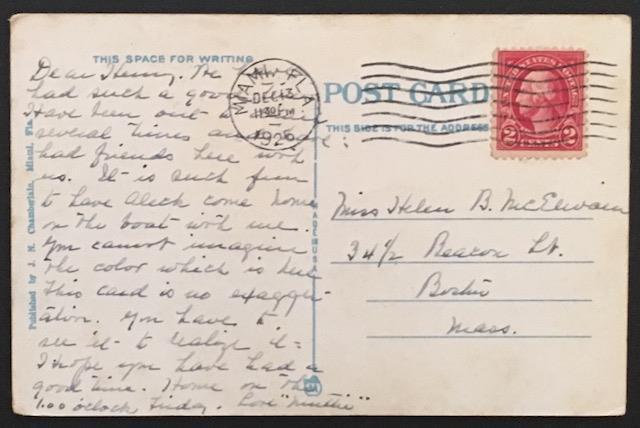 THIS SPACE FOR WRITING
Dear Henry. We
had such a good
Have been out
several times and have
had friends here with
us. It is such fun
to have Aleck come home
on the boat with me.
You cannot imagine
the color which is here
This card is no exagger-
ation. You have to
see it to realize it =
I hope you have had a
good time. Home on the
1.00 o'clock Friday. Love "Muttie"
Published by J. N. Chamberlain, Miami, Fla.
MIAMI, FLA
DEC 13
11 30 PM
1926
POST CARD
THIS SIDE IS FOR THE ADDRESS
UNITED STATES POSTAGE
2 CENTS 2
Miss Helen B. McElwain
34 1/2 Beacon St.
Boston
Mass.